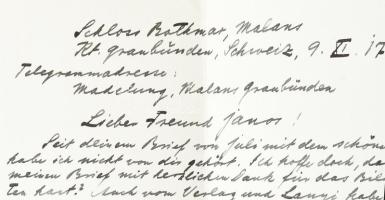 Schloss Bothmar, Malans
Kt. Graubünden, Schweiz, 9. XI. 17
Telegrammadresse:
Madelung, Malans Graubünden
Lieber Freund Janos!
Seit deinem Brief von Juli mit dem schönen
habe ich nicht von dir gehört. Ich hoffe doch, da
meinen Brief mit herzlichen Dank für das Bil
ten hast? Auch vom Verlag und Lanyi habe